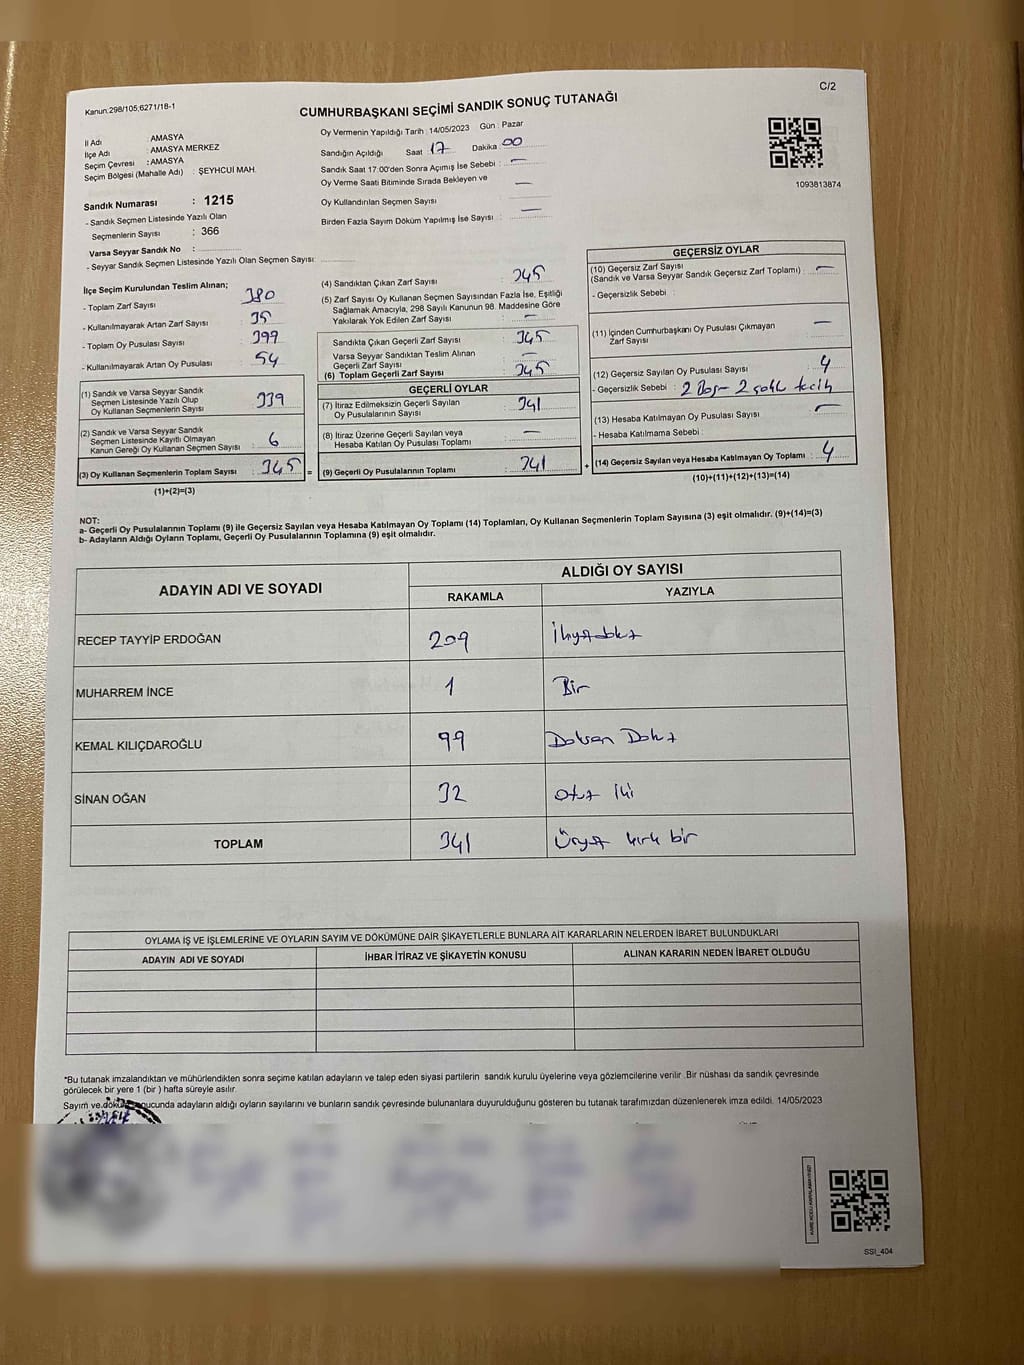 Kanun:298/105;6271/18-1
C/2
CUMHURBAŞKANI SEÇİMİ SANDIK SONUÇ TUTANAĞI
İl Adı : AMASYA
İlçe Adı : AMASYA MERKEZ
Seçim Çevresi : AMASYA
Seçim Bölgesi (Mahalle Adı) : ŞEYHCUİ MAH.
Oy Vermenin Yapıldığı Tarih : 14/05/2023 Gün : Pazar
Sandığın Açıldığı Saat 17 Dakika 00
Sandık Saat 17:00'den Sonra Açımış İse Sebebi : —
Oy Verme Saati Bitiminde Sırada Bekleyen ve
Oy Kullandırılan Seçmen Sayısı —
Birden Fazla Sayım Döküm Yapılmış İse Sayısı : —
1093813874
Sandık Numarası : 1215
- Sandık Seçmen Listesinde Yazılı Olan
Seçmenlerin Sayısı : 366
Varsa Seyyar Sandık No :
- Seyyar Sandık Seçmen Listesinde Yazılı Olan Seçmen Sayısı:
İlçe Seçim Kurulundan Teslim Alınan;
- Toplam Zarf Sayısı 380
- Kullanılmayarak Artan Zarf Sayısı 35
- Toplam Oy Pusulası Sayısı 399
- Kullanılmayarak Artan Oy Pusulası 54
(1) Sandık ve Varsa Seyyar Sandık
Seçmen Listesinde Yazılı Olup
Oy Kullanan Seçmenlerin Sayısı 339
(2) Sandık ve Varsa Seyyar Sandık
Seçmen Listesinde Kayıtlı Olmayan
Kanun Gereği Oy Kullanan Seçmen Sayısı : 6
(3) Oy Kullanan Seçmenlerin Toplam Sayısı 345 =
(1)+(2)=(3)
(4) Sandıktan Çıkan Zarf Sayısı 345
(5) Zarf Sayısı Oy Kullanan Seçmen Sayısından Fazla İse, Eşitliği
Sağlamak Amacıyla, 298 Sayılı Kanunun 98. Maddesine Göre
Yakılarak Yok Edilen Zarf Sayısı : —
Sandıkta Çıkan Geçerli Zarf Sayısı : 345
Varsa Seyyar Sandıktan Teslim Alınan
Geçerli Zarf Sayısı —
(6) Toplam Geçerli Zarf Sayısı : 345
GEÇERLİ OYLAR
(7) İtiraz Edilmeksizin Geçerli Sayılan
Oy Pusulalarının Sayısı : 341
(8) İtiraz Üzerine Geçerli Sayılan veya
Hesaba Katılan Oy Pusulası Toplamı : —
(9) Geçerli Oy Pusulalarının Toplamı : 341 +
GEÇERSİZ OYLAR
(10) Geçersiz Zarf Sayısı
(Sandık ve Varsa Seyyar Sandık Geçersiz Zarf Toplamı) : —
- Geçersizlik Sebebi :
(11) İçinden Cumhurbaşkanı Oy Pusulası Çıkmayan
Zarf Sayısı : —
(12) Geçersiz Sayılan Oy Pusulası Sayısı : 4
- Geçersizlik Sebebi : 2 Boş - 2
(13) Hesaba Katılmayan Oy Pusulası Sayısı : —
- Hesaba Katılmama Sebebi :
(14) Geçersiz Sayılan veya Hesaba Katılmayan Oy Toplamı : 4
(10)+(11)+(12)+(13)=(14)
NOT:
a- Geçerli Oy Pusulalarının Toplamı (9) ile Geçersiz Sayılan veya Hesaba Katılmayan Oy Toplamı (14) Toplamları, Oy Kullanan Seçmenlerin Toplam Sayısına (3) eşit olmalıdır. (9)+(14)=(3)
b- Adayların Aldığı Oyların Toplamı, Geçerli Oy Pusulalarının Toplamına (9) eşit olmalıdır.
ADAYIN ADI VE SOYADI
ALDIĞI OY SAYISI
RAKAMLA YAZIYLA
RECEP TAYYİP ERDOĞAN 209 İkiyüzdokuz
MUHARREM İNCE 1 Bir
KEMAL KILIÇDAROĞLU 99 Doksan Dokuz
SİNAN OĞAN 32 otuz iki
TOPLAM 341 Üçyüz kırk bir
OYLAMA İŞ VE İŞLEMLERİNE VE OYLARIN SAYIM VE DÖKÜMÜNE DAİR ŞİKAYETLERLE BUNLARA AİT KARARLARIN NELERDEN İBARET BULUNDUKLARI
ADAYIN ADI VE SOYADI İHBAR İTİRAZ VE ŞİKAYETİN KONUSU ALINAN KARARIN NEDEN İBARET OLDUĞU
*Bu tutanak imzalandıktan ve mühürlendikten sonra seçime katılan adayların ve talep eden siyasi partilerin sandık kurulu üyelerine veya gözlemcilerine verilir .Bir nüshası da sandık çevresinde
görülecek bir yere 1 (bir ) hafta süreyle asılır.
Sayım ve adayların aldığı oyların sayılarını ve bunların sandık çevresinde bulunanlara duyurulduğunu gösteren bu tutanak tarafımızdan düzenlenerek imza edildi. 14/05/2023
SSI_404